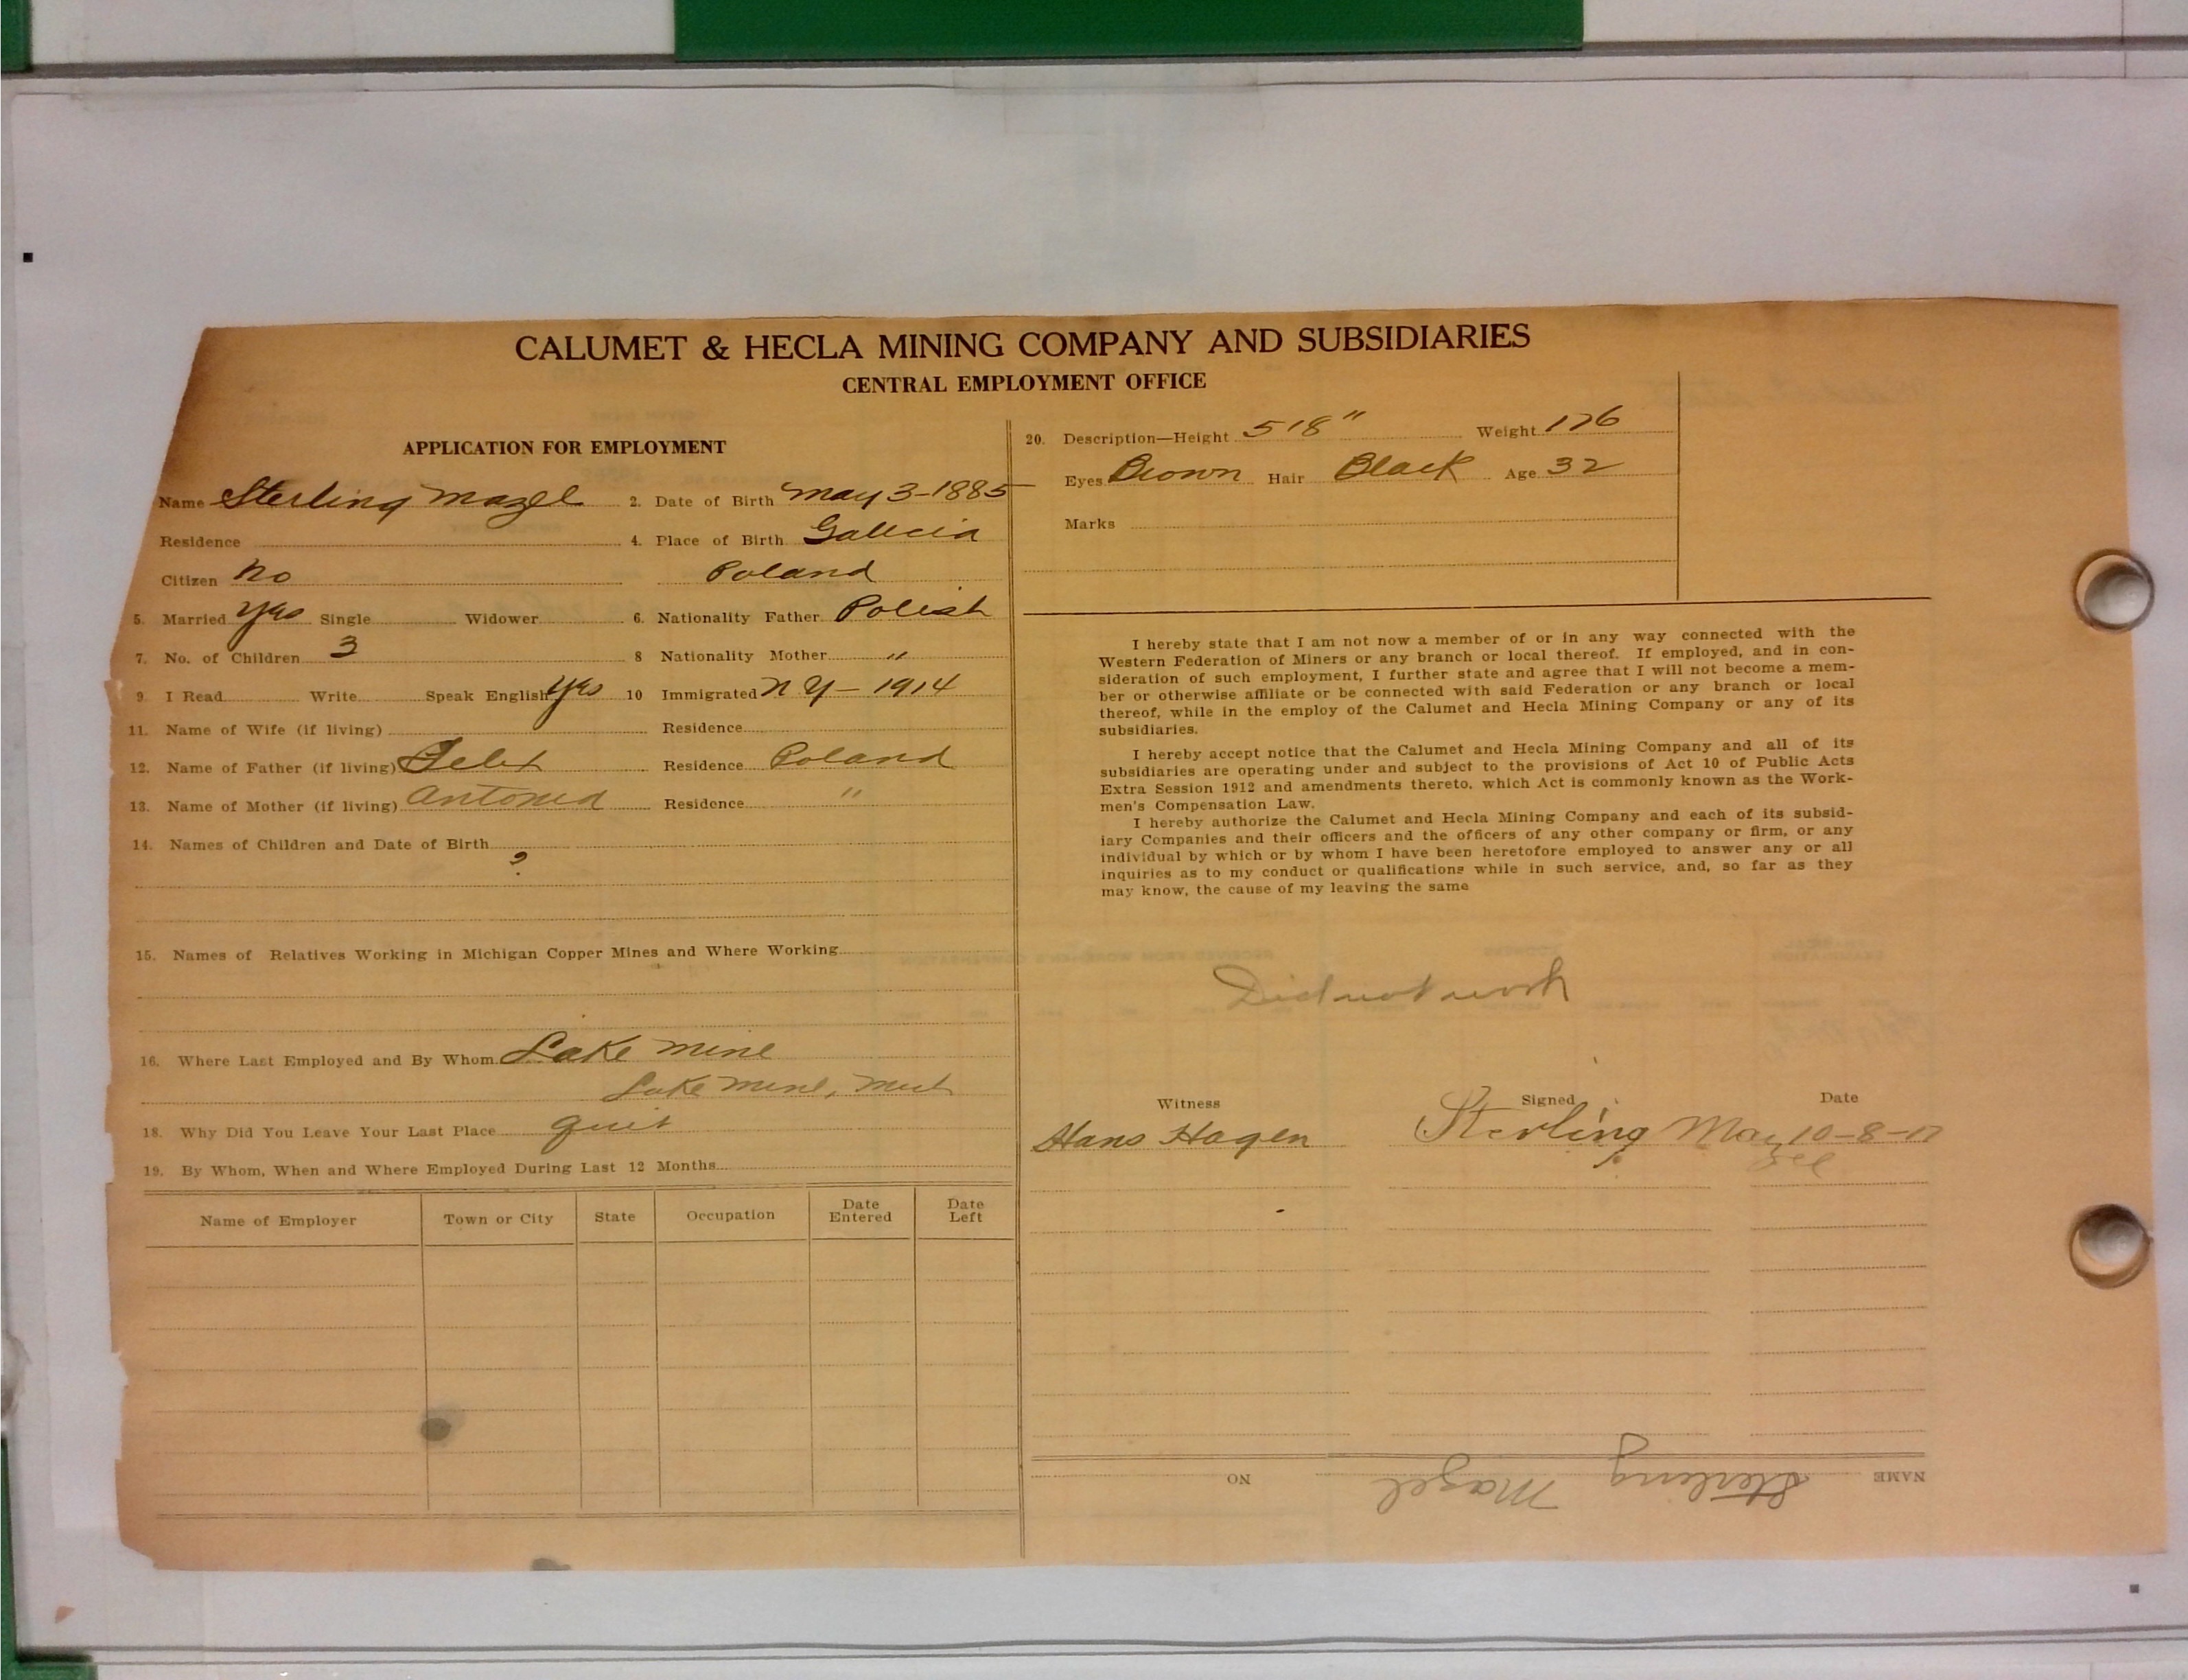 CALUMET & HECLA MINING COMPANY AND SUBSIDIARIES
CENTRAL EMPLOYMENT OFFICE
APPLICATION FOR EMPLOYMENT
Name Sterling Mazel 2. Date of Birth May 3-1885
Residence 4. Place of Birth Galicia
Citizen No Poland
5. Married Yes Single Widower 6. Nationality Father Polish
7. No. of Children 3 8 Nationality Mother "
9. I Read Write Speak English Yes 10 Immigrated N Y - 1914
11. Name of Wife (if living) Residence
12. Name of Father (if living) Felix Residence Poland
13. Name of Mother (if living) Antonia Residence "
14. Names of Children and Date of Birth
?
15. Names of Relatives Working in Michigan Copper Mines and Where Working
16. Where Last Employed and By Whom Lake Mine
Lake Mine, Mich
18. Why Did You Leave Your Last Place quit
19. By Whom, When and Where Employed During Last 12 Months
Name of Employer Town or City State Occupation Date Entered Date Left
20. Description—Height 5'8" Weight 176
Eyes Brown Hair Black Age 32
Marks
I hereby state that I am not now a member of or in any way connected with the
Western Federation of Miners or any branch or local thereof. If employed, and in con-
sideration of such employment, I further state and agree that I will not become a mem-
ber or otherwise affiliate or be connected with said Federation or any branch or local
thereof, while in the employ of the Calumet and Hecla Mining Company or any of its
subsidiaries.
I hereby accept notice that the Calumet and Hecla Mining Company and all of its
subsidiaries are operating under and subject to the provisions of Act 10 of Public Acts
Extra Session 1912 and amendments thereto, which Act is commonly known as the Work-
men's Compensation Law.
I hereby authorize the Calumet and Hecla Mining Company and each of its subsid-
iary Companies and their officers and the officers of any other company or firm, or any
individual by which or by whom I have been heretofore employed to answer any or all
inquiries as to my conduct or qualifications while in such service, and, so far as they
may know, the cause of my leaving the same
Did not work
Witness Signed Date
Hans Hagen Sterling Ma 10-8-17
zel
NAME Sterling Mazel NO